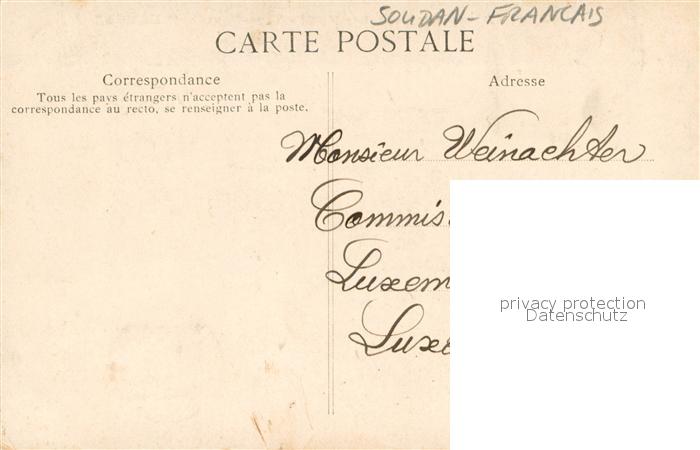 SOUDAN - FRANCAIS
CARTE POSTALE
Correspondance
Tous les pays étrangers n'acceptent pas la
correspondance au recto, se renseigner à la poste.
Adresse
Monsieur Weinachter
Commis
Luxem
Luxe
privacy protection
Datenschutz